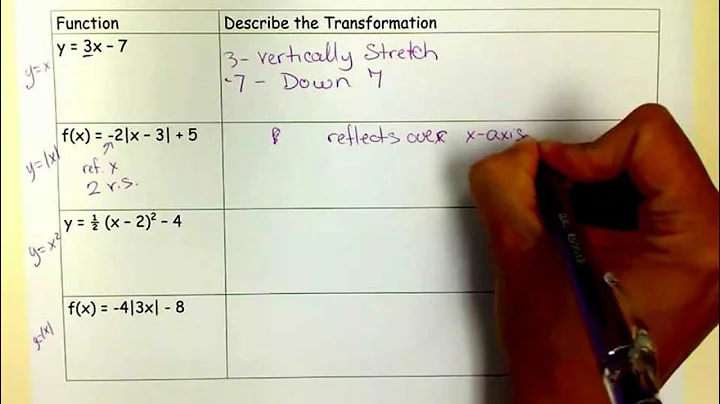 Function Describe the Transformation
y=x y = 3x - 7 3 - vertically Stretch
-7 - Down 7
y=|x| f(x) = -2|x - 3| + 5 reflects over x-axis
ref. x
2 v.s.
y=x² y = ½ (x - 2)² - 4
y=|x| f(x) = -4|3x| - 8